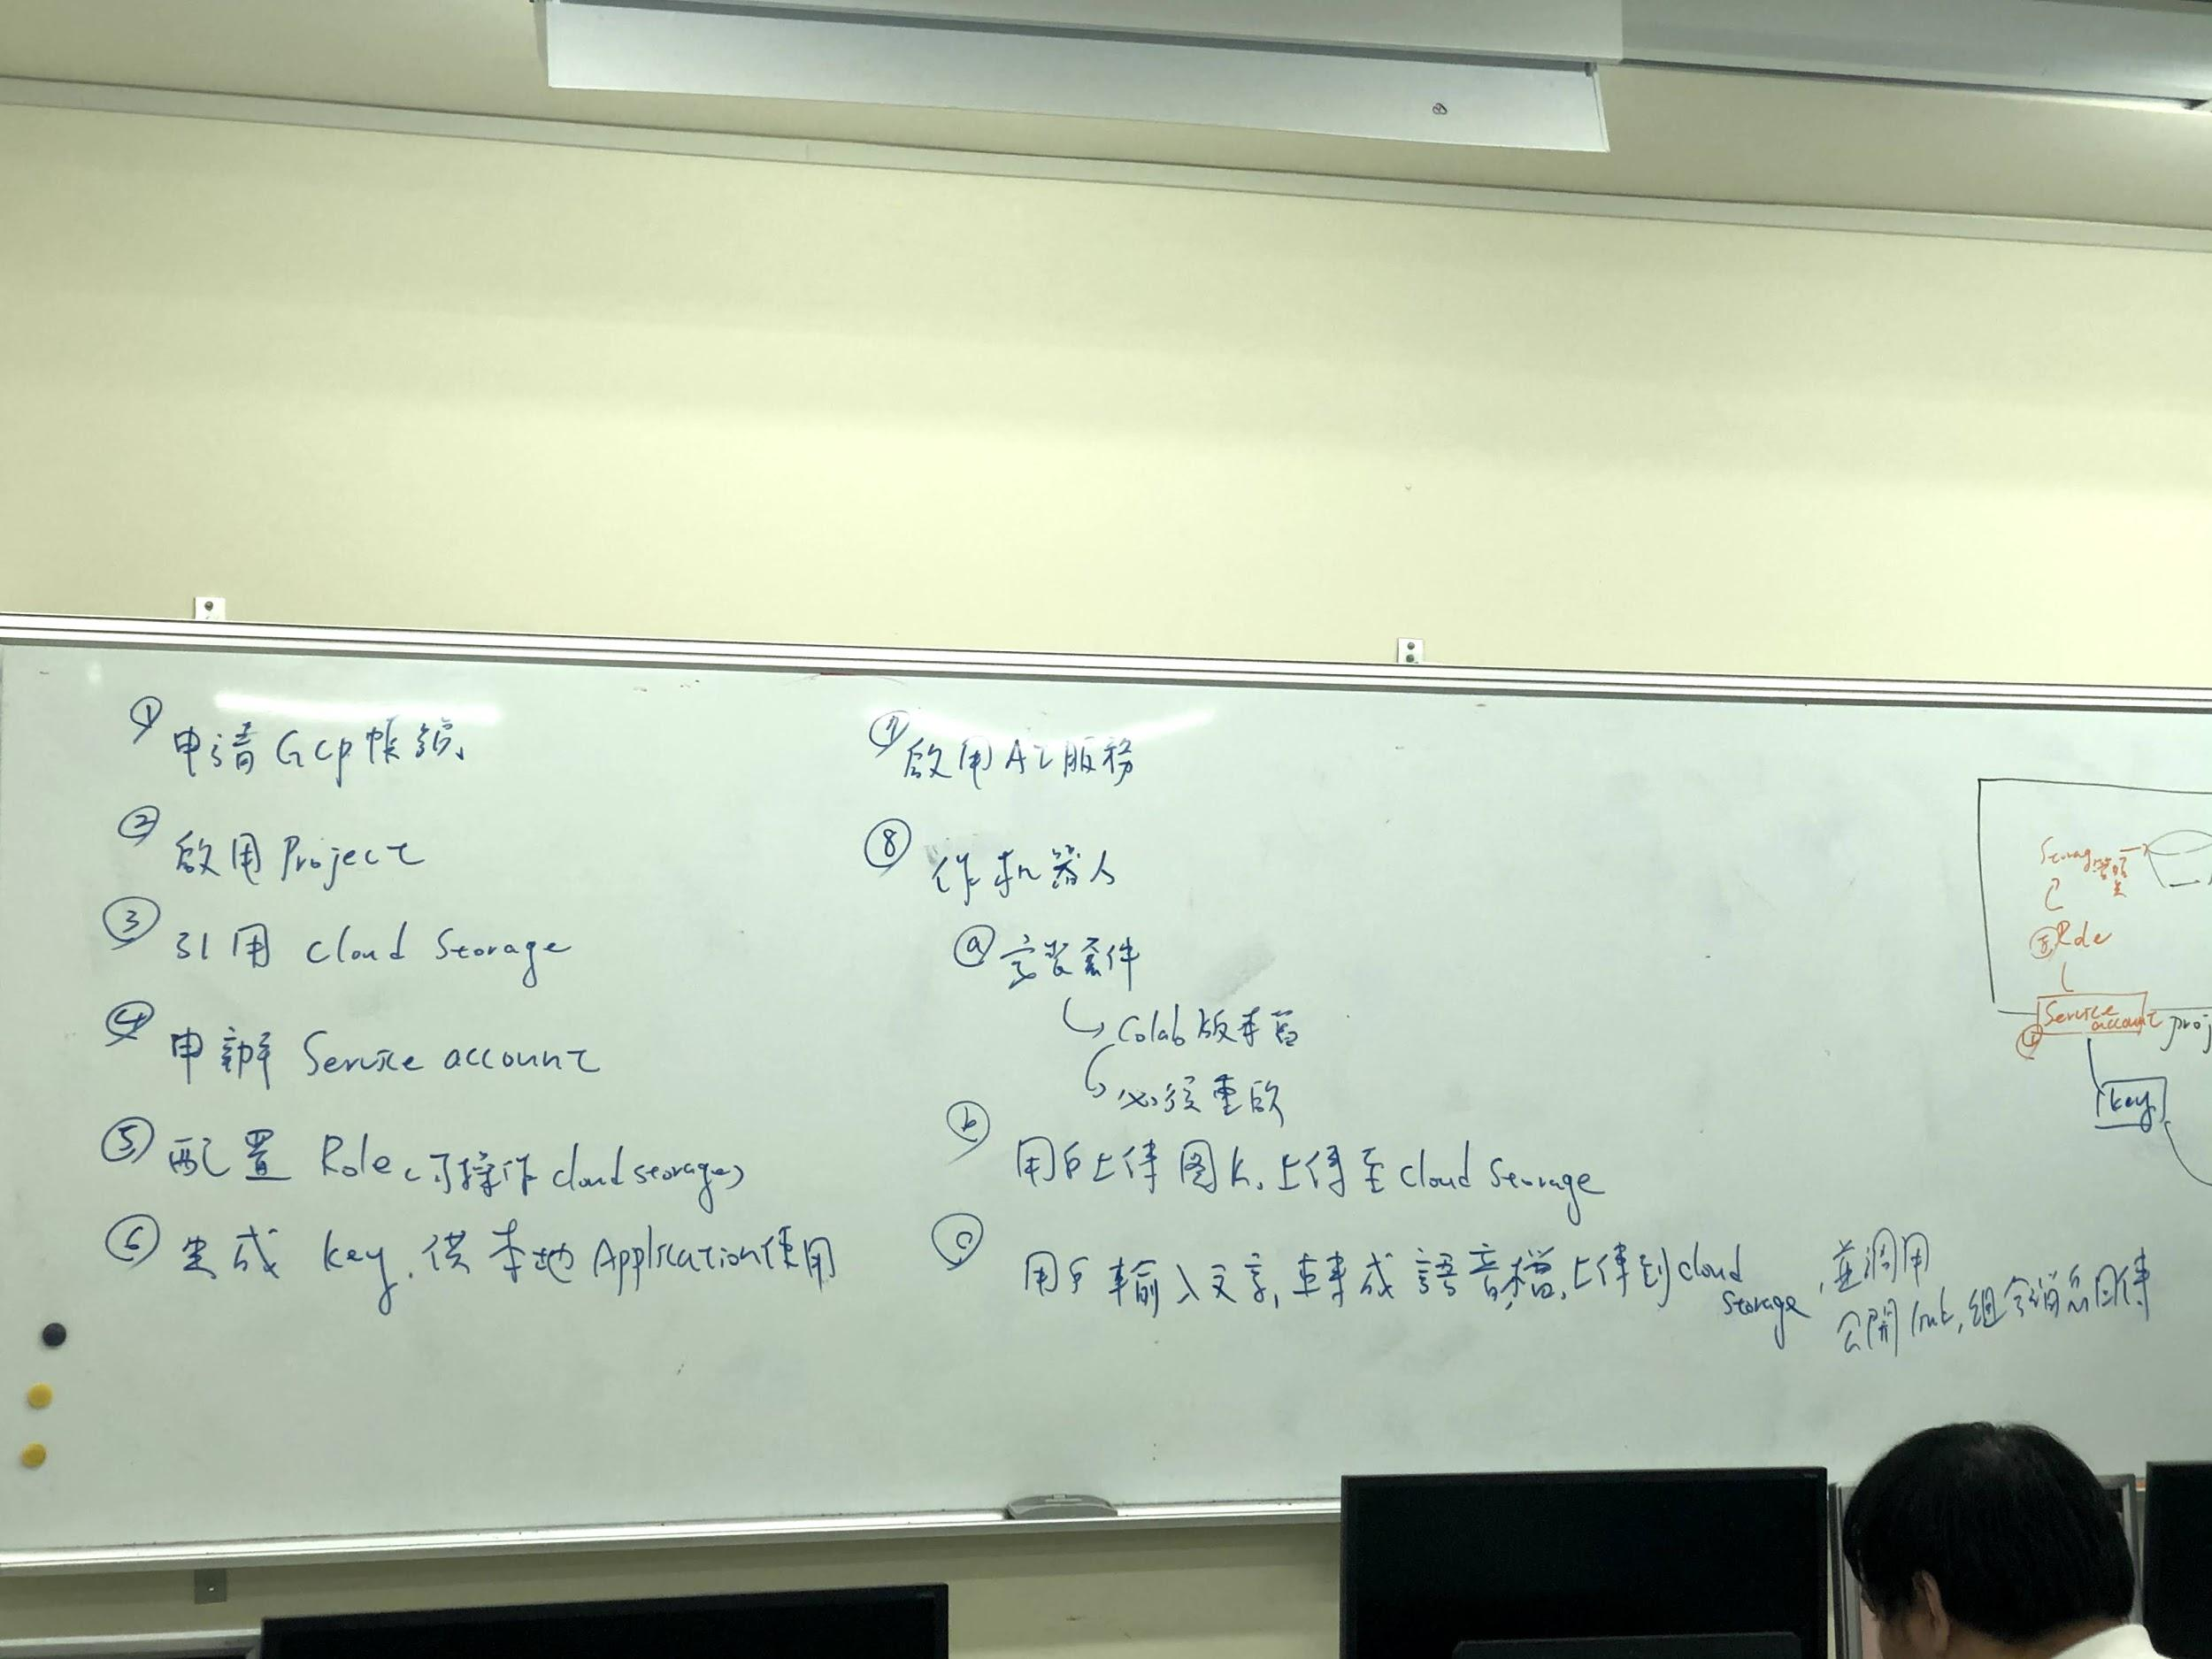 ① 申請 Gcp 帳號
② 啟用 Project
③ 引用 cloud Storage
④ 申辦 Service account
⑤ 配置 Role (可操作 cloud storage)
⑥ 生成 key, 供本地 Application 使用
⑦ 啟用 AI 服務
⑧ 作机器人
ⓐ 安裝套件
Colab 版本舊
必須重啟
ⓑ 用戶上傳图片, 上傳至 cloud Storage
ⓒ 用戶輸入文字, 轉成語音檔, 上傳到 cloud
Storage, 並調用
公開 link, 組合消息回傳
⑤ Role
④ Service
account
proj
key